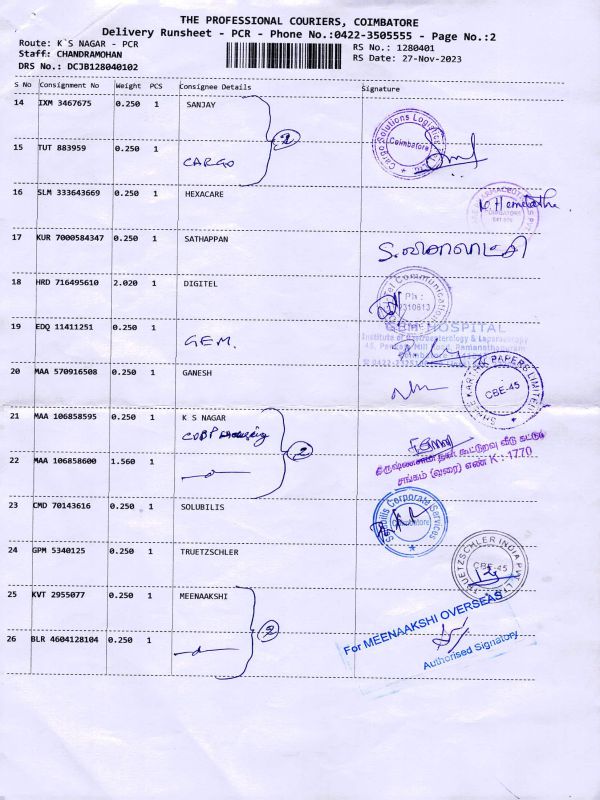 THE PROFESSIONAL COURIERS, COIMBATORE
Delivery Runsheet - PCR - Phone No.:0422-3505555 - Page No.:2
Route: K`S NAGAR - PCR
RS No.: 1280401
Staff: CHANDRAMOHAN
RS Date: 27-Nov-2023
DRS No.: DCJB128040102
S No Consignment No Weight PCS Consignee Details Signature
14 IXM 3467675 0.250 1 SANJAY
2
Cargo Solutions Logistics
Coimbatore
15 TUT 883959 0.250 1
CARGO
16 SLM 333643669 0.250 1 HEXACARE
COIMBATORE
17 KUR 7000584347 0.250 1 SATHAPPAN
S. விசாலாட்சி
18 HRD 716495610 2.020 1 DIGITEL
Ph :
19 EDQ 11411251 0.250 1
GEM.
GEM HOSPITAL
Institute of Gastroenterology & Laparoscopy
45, Pankaja Mill Road, Ramanathapuram
20 MAA 570916508 0.250 1 GANESH
PAPERS LIMITED
CBE-45
21 MAA 106858595 0.250 1 K S NAGAR
2
சங்கம் (வரை) எண் K-1770
22 MAA 106858600 1.560 1
23 CMD 70143616 0.250 1 SOLUBILIS
Solubilis Corporate Services
Coimbatore
24 GPM 5340125 0.250 1 TRUETZSCHLER
TRUETZSCHLER INDIA PVT. LTD
CBE-45
25 KVT 2955077 0.250 1 MEENAAKSHI
2
For MEENAAKSHI OVERSEAS
Authorised Signatory
26 BLR 4604128104 0.250 1